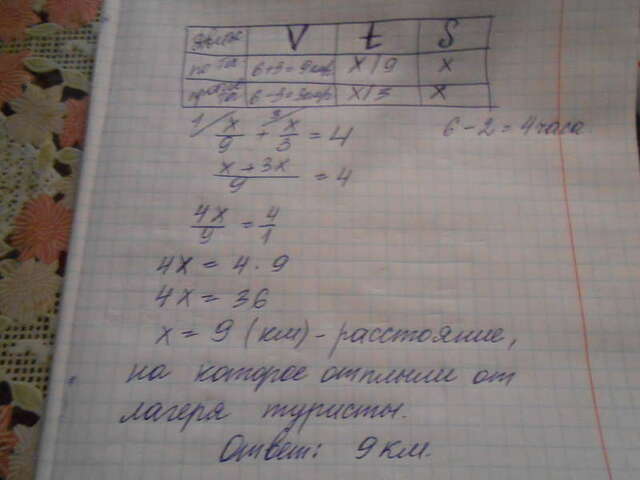 V t S
по теч 6+3=9км/ч x/9 x
6-3=3км/ч x/3 x
1/ x/9 + 3/ x/3 = 4 6-2=4 часа
x+3x/9 = 4
4x/9 = 4/1
4x = 4·9
4x = 36
x = 9 (км) - расстояние,
на которое отплыли от
лагеря туристы.
Ответ: 9 км.